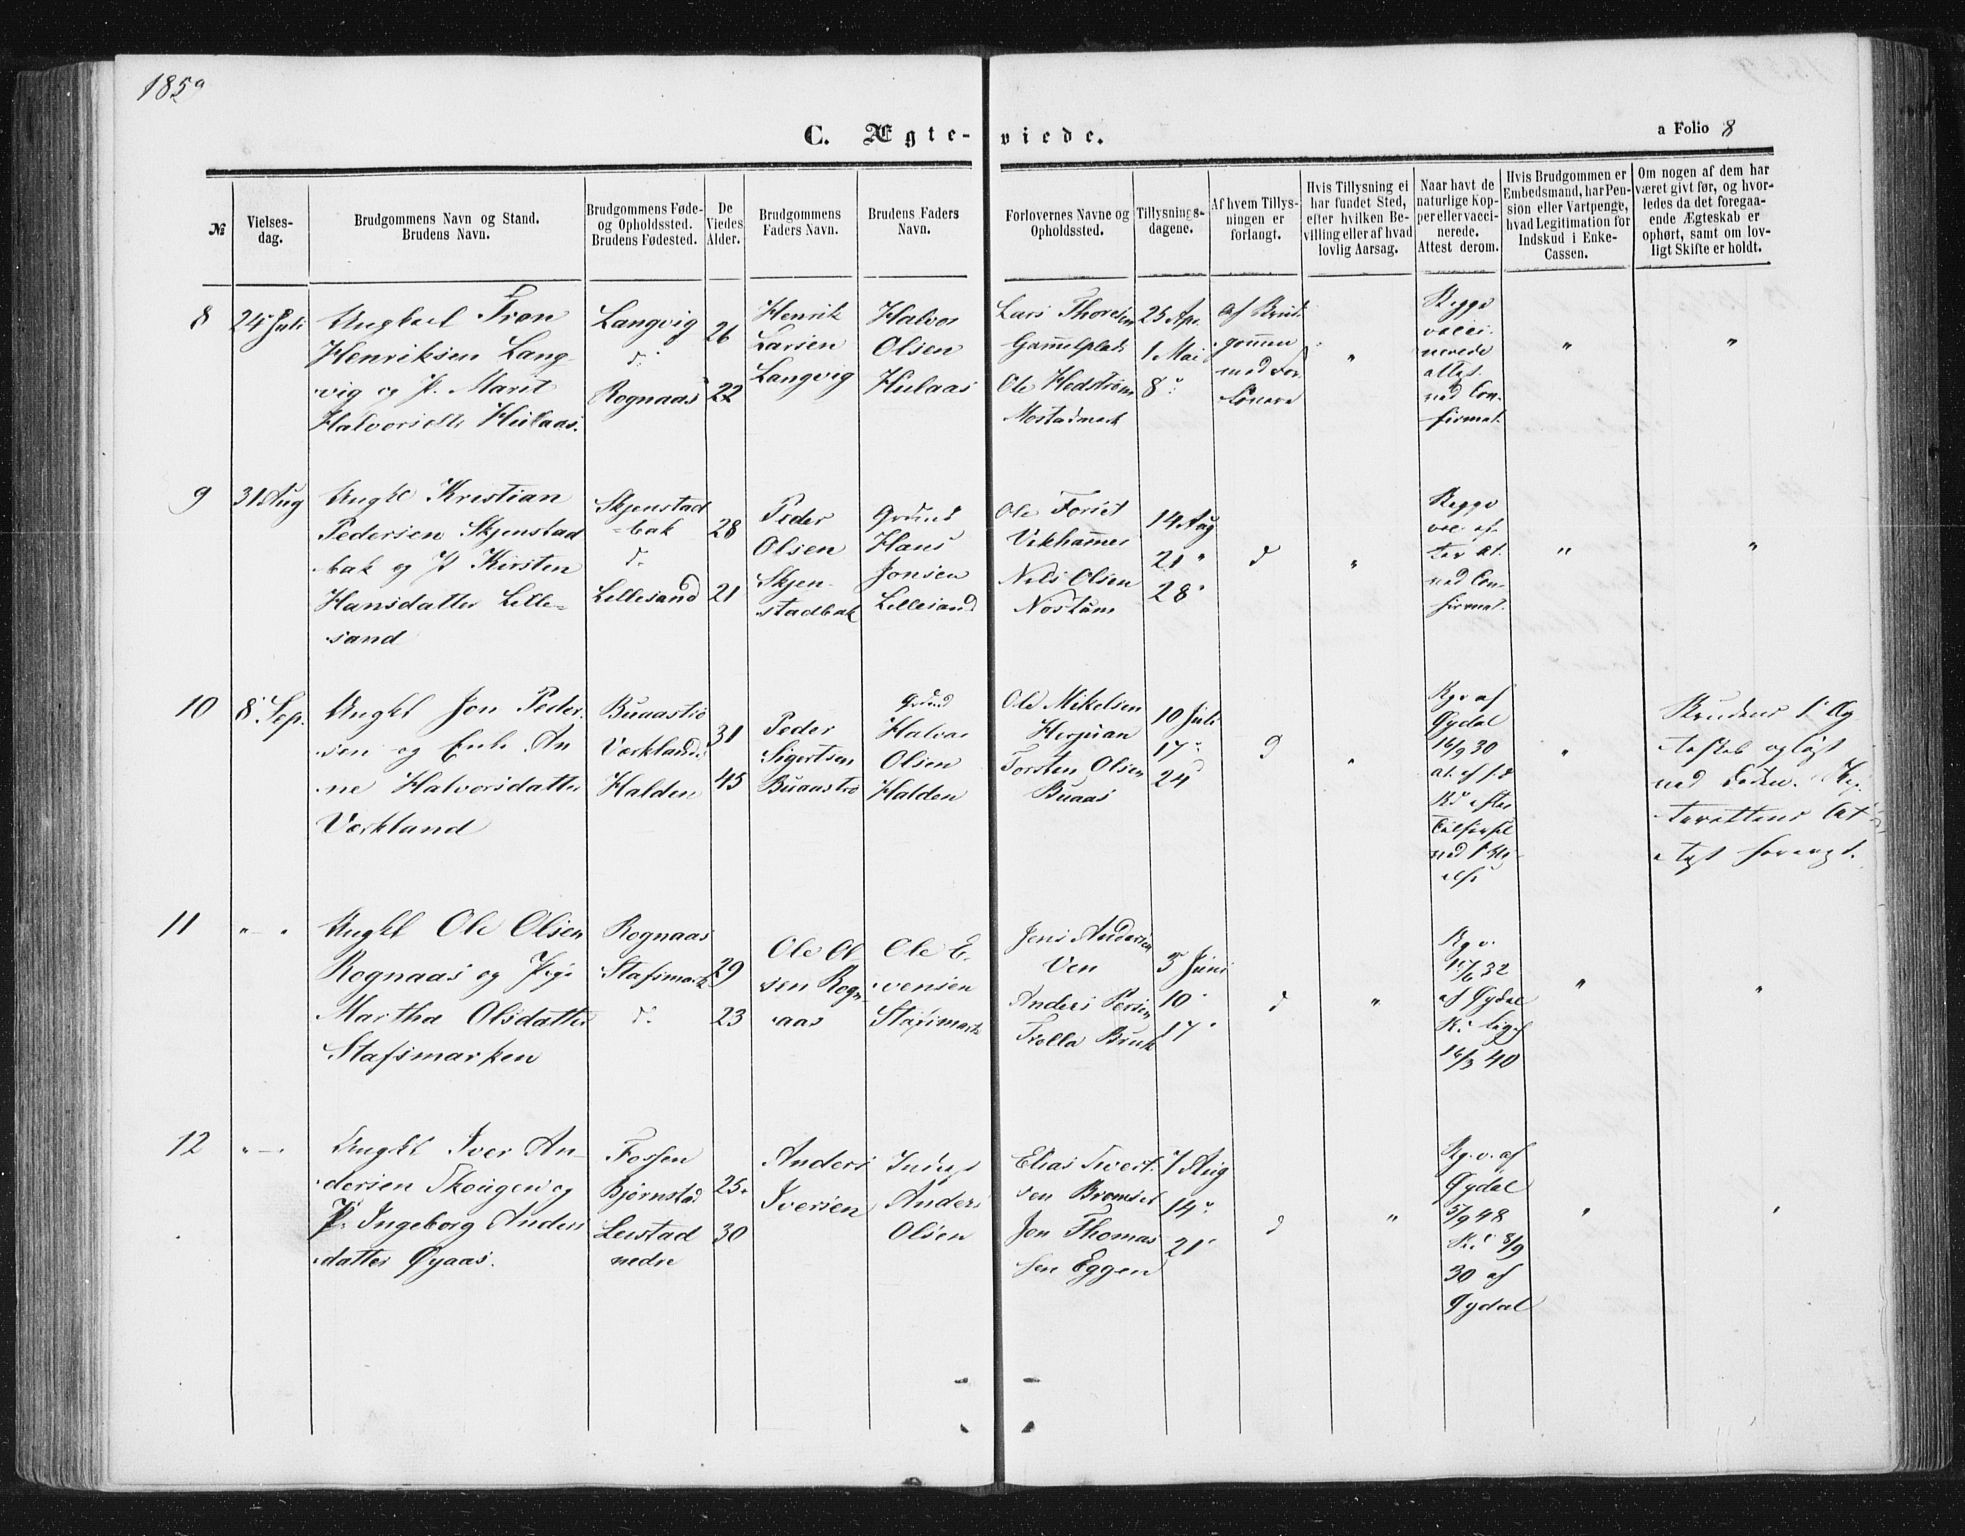 1859
C. Ægte-viede.
a Folio 8
№
Vielses-
dag.
Brudgommens Navn og Stand.
Brudens Navn.
Brudgommens Føde-
og Opholdssted.
Brudens Fødested.
De
Viedes
Alder.
Brudgommens
Faders Navn.
Brudens Faders
Navn.
Forlovernes Navne og
Opholdssted.
Tillysnings-
dagene.
Af hvem Tillys-
ningen er
forlangt.
Hvis Tillysning ei
har fundet Sted,
efter hvilken Be-
villing eller af hvad
lovlig Aarsag.
Naar havt de
naturlige Kop-
per eller vacci-
nerede.
Attest derom.
Hvis Brudgommen er
Embedsmand, har Pen-
sion eller Vartpenge,
hvad Legitimation for
Indskud i Enke-
Cassen.
Om nogen af dem har
været givt før, og hvor-
ledes da det foregaa-
ende Ægteskab er
ophørt, samt om lov-
ligt Skifte er holdt.
8
24 Juli
Ungkarl Tron
Henriksen Lang
vig og P. Marit
Halvorsdtr Hulaas.
Langvig
d.
Rognaas
26
22
Henrik
Larsen
Langvig
Halvor
Olsen
Hulaas
Lars Thoresen
Gammelplads
Ole Hedstrøm
Mostadmark
25 Apr.
1 Mai
8 "
af Brud-
gommen
med For-
lovere
"
Begge
vacci-
nerede
attest.
ved Con-
firmat.
"
"
9
31 Aug
Ungkl Kristian
Pedersen Skjenstad
bak og P Kirsten
Hansdatter Lille-
sand
Skjenstad
-bak
d.
Lillesand
28
21
Peder
Olsen
Skjen-
stadbak
Grdmd
Hans
Jonsen
Lillesand
Ole Foriet
Vikhammer
Nils Olsen
Nostum
14 Aug
21 "
28 "
d
"
Begge
vac. af-
ter at.
ved Con-
firmat.
"
"
10
8 Sep.
Ungkl Jon Peder-
sen og Enke An
ne Halvorsdatter
Værkland
Buaastrø
Værkland
Halden
31
45
Peder
Sigertsen
Buaastrø
Grdmd
Halvor
Olsen
Halden
Ole Mikelsen
Herjuan
Torsten Olsen
Buaas
10 Juli
17 "
24
d
"
Bgr af
Gydal
16/9 30
at. af s.d
Br efter
ved 1
"
Brudens 1 Æg
teskab opløst
ved Døden. Skif
terettens At
test forevist.
11
" — "
Ungkl Ole Olsen
Rognaas og Pige
Martha Olsdatter
Stafsmarken
Rognaas
Stafsmark
d.
29
23
Ole Ol
sen Rogn-
aas
Ole E-
vensen
Stafsmark
Jens Andersen
Ven
Anders Persen
Trolla Bruk
3 Juni
10 "
17 "
d
"
Bg. v.
6 32
af Gydal
Br. lig af
16/3 40
"
"
12
" — "
Ungkl Iver An-
dersen Skougen og
P. Ingeborg Anders
datter Øyaas.
Fossen
Bjørnstad
Leistad
nedre
25
30
Anders
Iversen
Anders
Olsen
Elias Sivert-
sen Bromset
Jon Thomas
sen Eggen
7 Aug
14 "
21 "
d
"
Bg. v. af
Gydal
5/9 48
Br. 8/9
30 af
Gydal
"
"